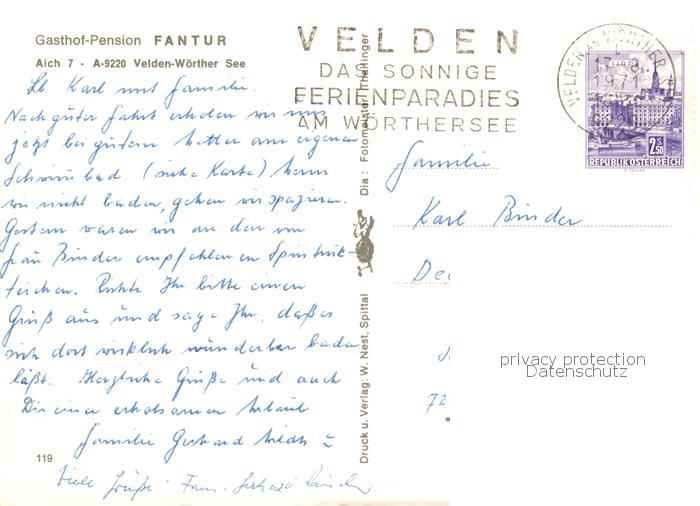 Gasthof-Pension FANTUR
Aich 7 - A-9220 Velden-Wörther See
Lb Karl mit Familie.
Nach guter Fahrt erholen wir uns
jetzt bei gutem Wetter am eigenen
Schwimmbad. (siehe Karte) Wenn
wir nicht baden, gehen wir spazieren.
Gestern waren wir an den von
Frau Binder empfohlenen
teichen. Richte Ihr bitte einen
Gruß aus und sage Ihr, daß es
sich dort wirklich wunderbar baden
läßt. Herzliche Grüße und auch
Dir einen erholsamen Urlaub
Familie Gerhard
119
Viele Grüße Fam. Gerhard
VELDEN
DAS SONNIGE
FERIENPARADIES
AM WÖRTHERSEE
VELDEN AM WÖRTHER
17.8.
1971
9220
2 S 50
REPUBLIK ÖSTERREICH
Dia: Fotomeister
Druck u. Verlag: W. Nest, Spittal
Familie
Karl Binder
De
72
privacy protection
Datenschutz